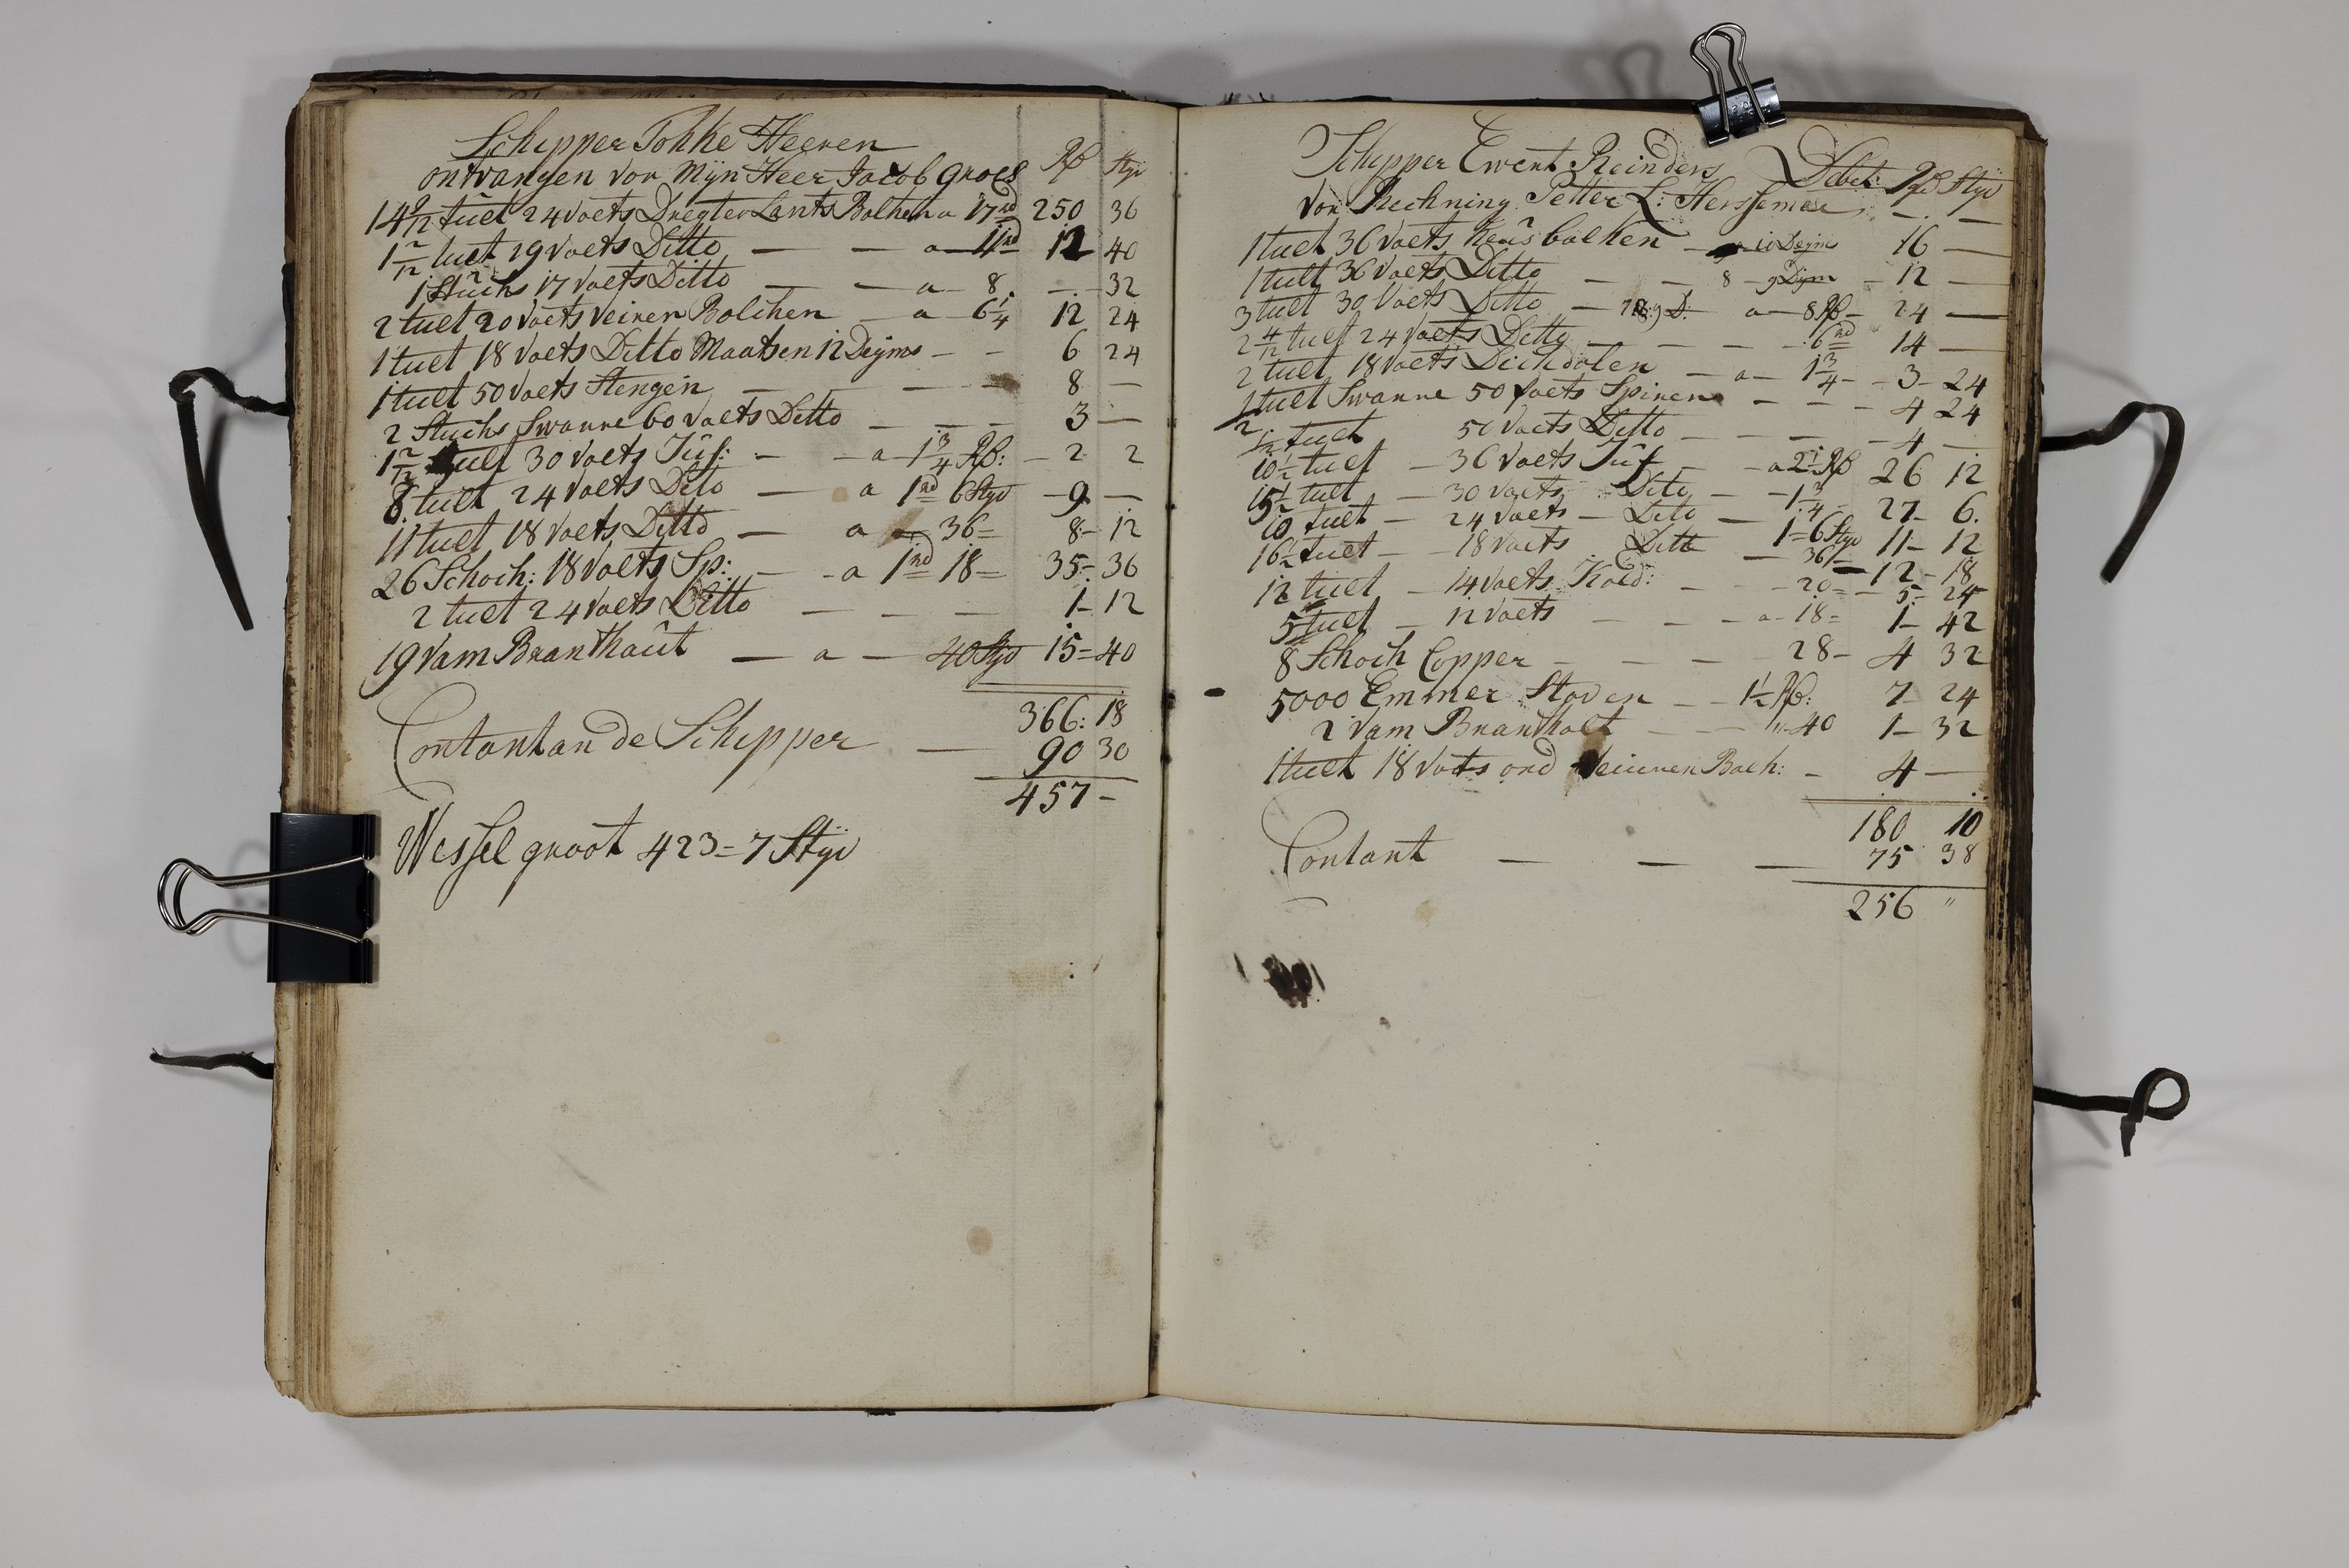 Schipper Fokke Heeren
ontvangen vor Mijn Heer Jacob groes Rß Styv
14 9/12 tuelt 24 voets Dregter Lants Balken a 17 rd 250 36
1 2/12 tuelt 19 voets Ditto — — a — 11 rd 12 40
1 Stuchs 17 voets Ditto — — a — 8. — 32
2 tuelt 20 voets veiren Bolchen — a — 6 1/4 12 24
1 tuelt 18 Voets Ditto Maatsen 12 Deyms — — 6 24
1 tuelt 50 voets Stengen — — — 8 —
2 Stuchs Swanne 60 voets Ditto — — — 3 —
1 2/12 tuelt 30 voets Juf: — — a — 1 3/4 Rß: — 2 2
8 tuelt 24 voets Dito — a 1 rd 6 Styv — 9 —
11 tuelt 18 voets Ditto — a — 36 = 8 - 12
26 Schoch: 18 voets Sp: — — a 1 rd 18 = 35 = 36
2 tuelt 24 voets Ditto — — — 1 - 12
19 Vam Branthaut — a — 40 Styv 15 = 40
366: 18
Contant an de Schipper — 90 30
457 -
Wessel groot 423 = 7 Styv
Schipper Ewert Reinders Debet: Rß Styv
Vor Rechning Petter L: Herssemer — —
1 tuelt 36 voets Keus balken — 11 Deyms 16 —
1 tuelt 36 voets Ditto — — 8 — 9 Dym — 12 —
3 tuelt 30 Voets Ditto — 9 D: a — 8 Rß — 24 —
2 4/12 tuelt 24 Voets Ditto — — — 6 rd 14 —
2 tuelt 18 voets Dichdalen — a — 1 3/4 — 3 — 24
1 tuelt Swanne 50 foets Spiren — — — 4 24
tuelt 50 voets Ditto — — — 4 —
10 1/2 tuelt — 36 voets Juf — — a 2 1/2 Rß 26 12
15 1/2 tuelt — 30 voets Dito — — 1 3/4 — 27 - 6.
10 tuelt — 24 voets — Dito — 1 = 6 Styv 11 - 12
16 1/2 tuelt — — 18 voets Ditto — 36 — 12 - 18
12 tuelt — 14 voets Kold: — — 20 = — 5 = 24
5 tuelt — 12 voets — — — a - 18 = 1 - 42
8 Schoch Copper — — — 28 - 4 32
5000 Emmer Staven — — 1 1/2 Rß: 7 - 24
2 Vam Brantholt — — " - 40 1 - 32
1 tuelt 18 Voets ord Veiuren Balk: — 4 —
180 10
Contant — — — 75 38
256 "